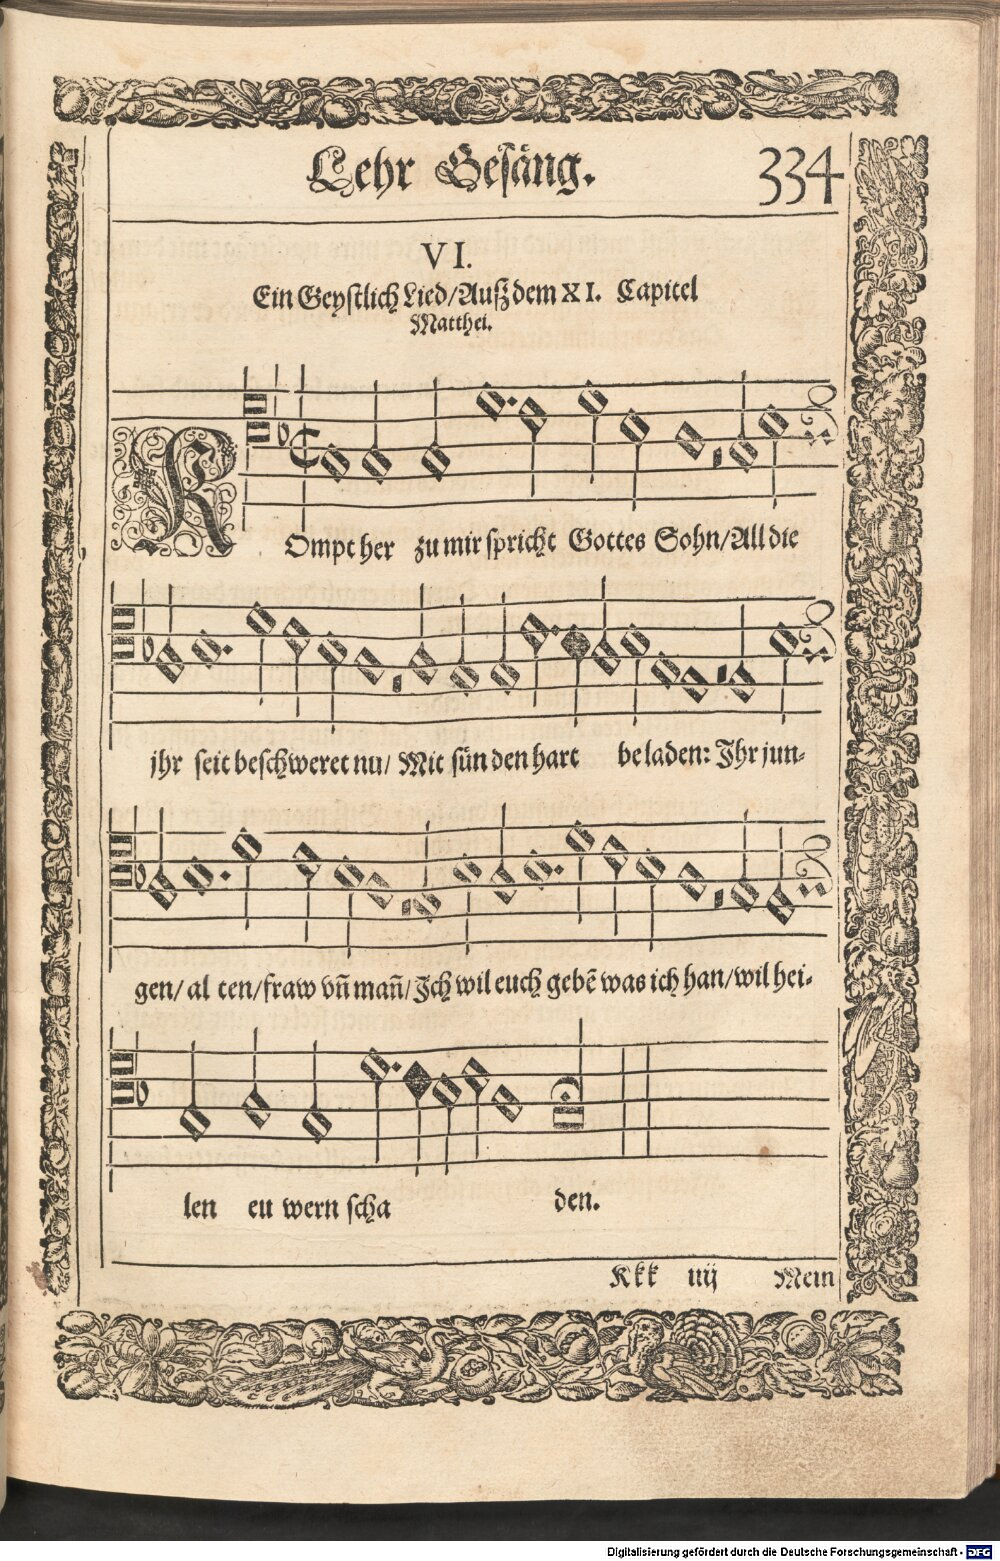 Lehr Gesäng. 334
VI.
Ein Geystlich Lied/Auß dem XI. Capitel
Matthei.
KOmpt her zu mir spricht Gottes Sohn/All die
jhr seit beschweret nu/ Mit sünden hart beladen: Ihr jun-
gen/ alten/fraw vñ mañ/Ich wil euch gebẽ was ich han/wil hei-
len euwern scha den.
Kkk iiij Mein
Digitalisierung gefördert durch die Deutsche Forschungsgemeinschaft - DFG